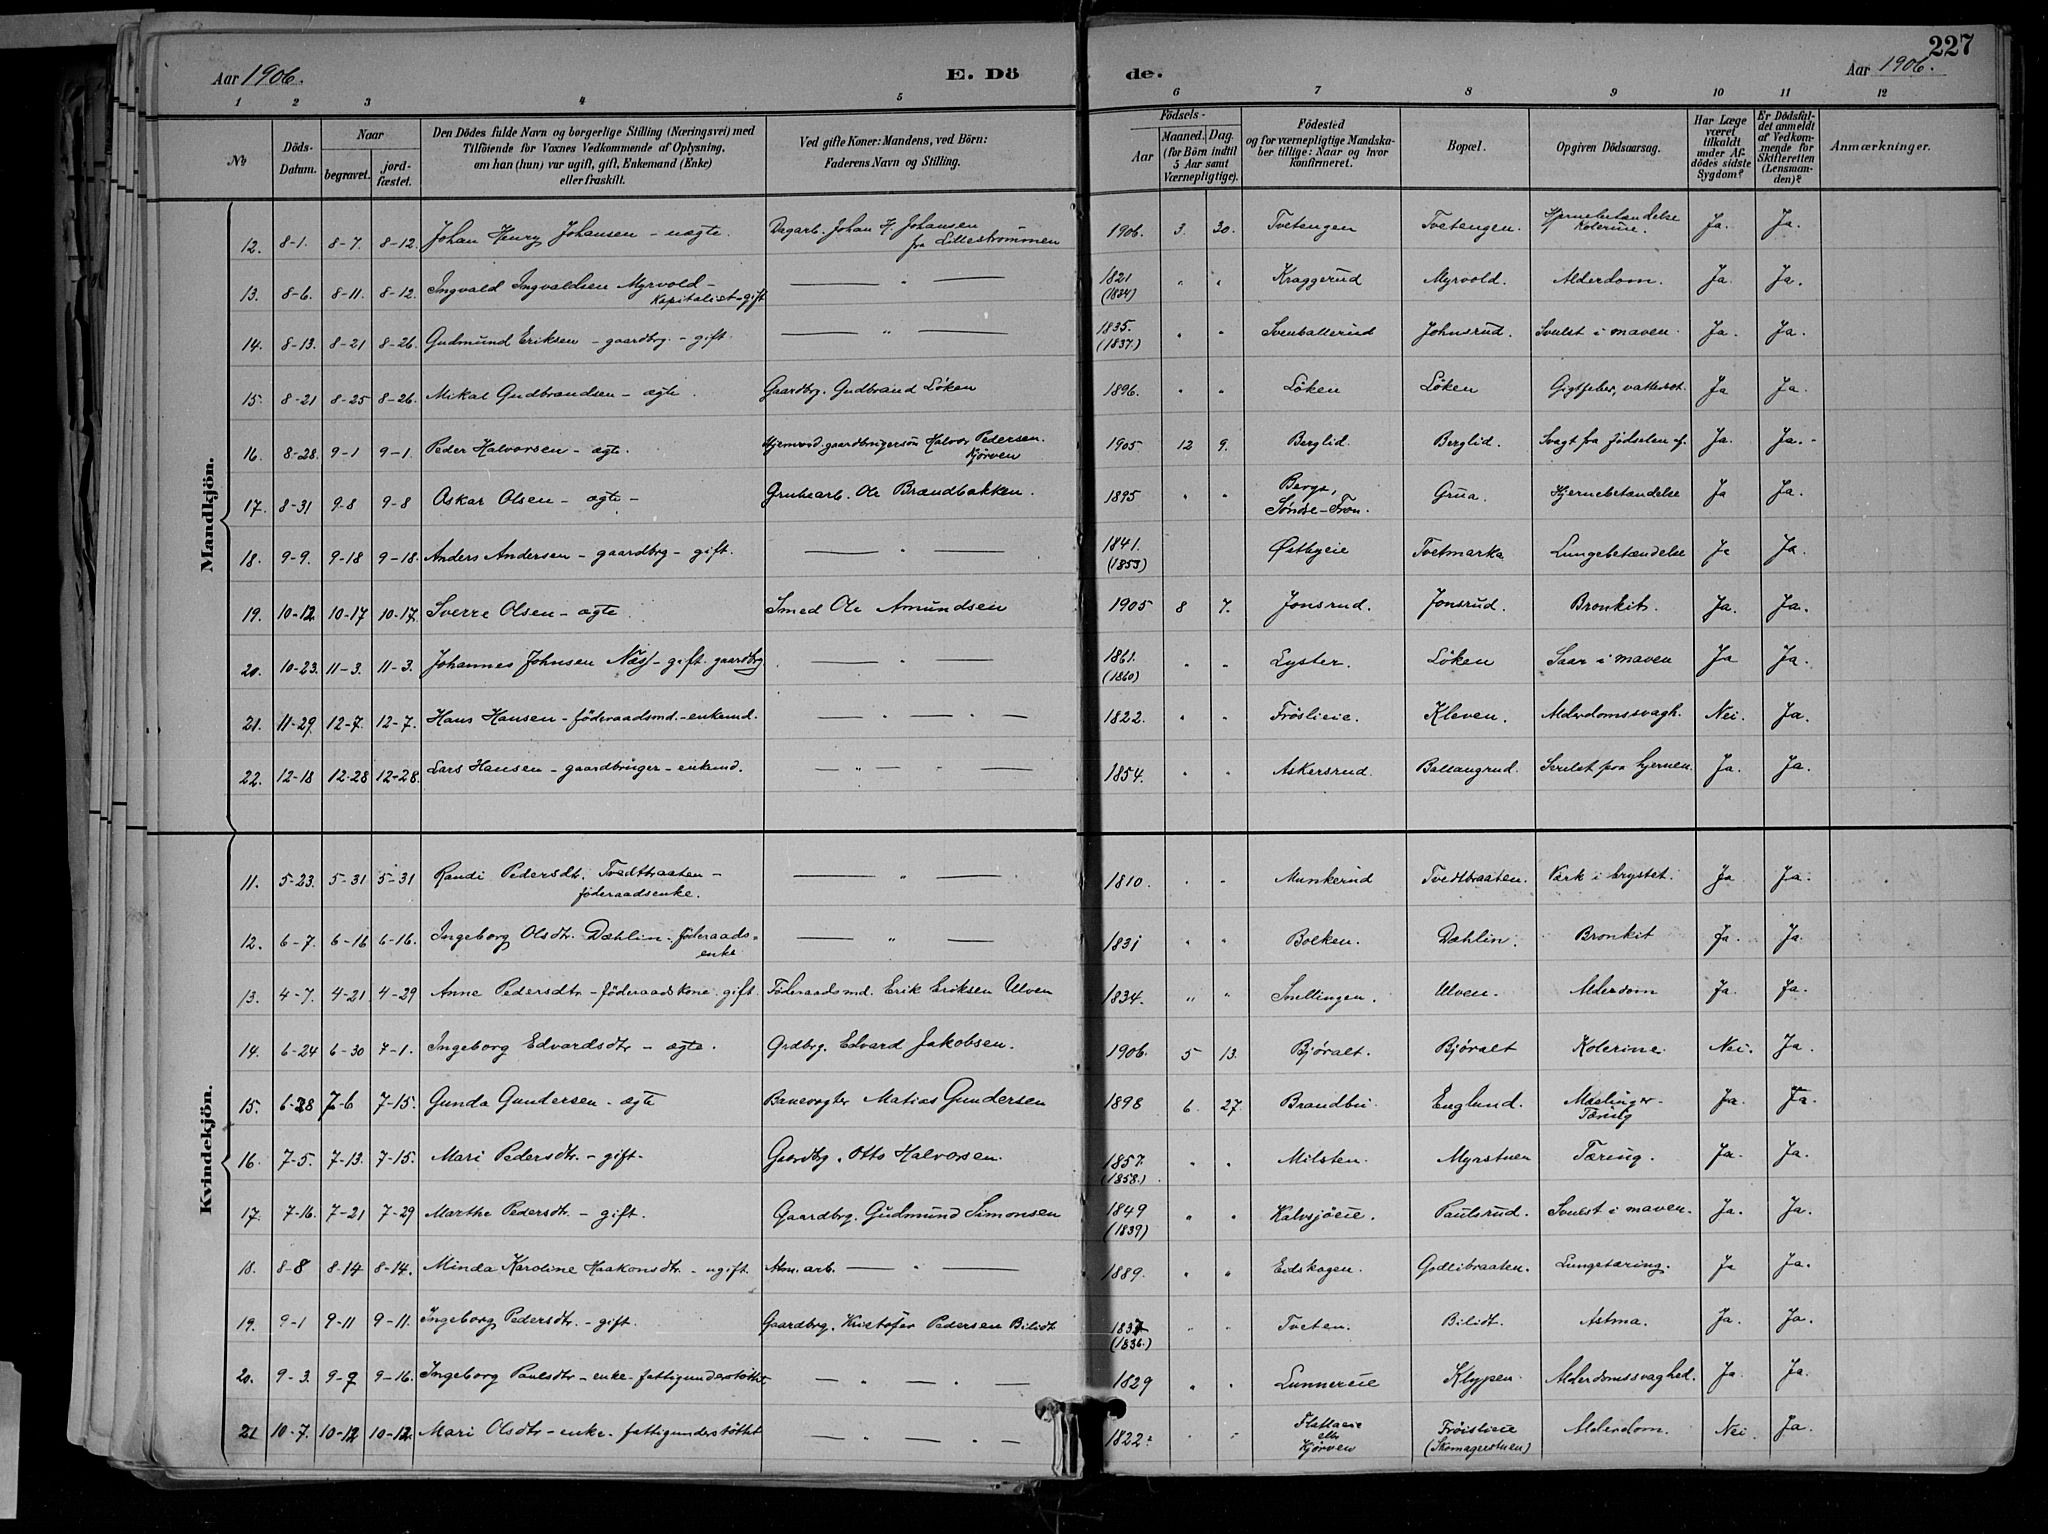 227
Aar 1906. E. Dö de. Aar 1906.
1 2 3 4 5 6 7 8 9 10 11 12
No
Döds-Datum.
Naar begravet. jordfæstet.
Den Dödes fulde Navn og borgerlige Stilling (Næringsvei) med Tilföiende for Voxnes Vedkommende af Oplysning, om han (hun) var ugift, gift, Enkemand (Enke) eller fraskilt.
Ved gifte Koner: Mandens, ved Börn: Faderens Navn og Stilling.
Födsels- Aar Maaned. Dag. (for Börn indtil 5 Aar samt Værnepligtige).
Födested og for værnepligtige Mandskaber tillige: Naar og hvor konfirmeret.
Bopæl.
Opgiven Dödsaarsag.
Har Læge været tilkaldt under Afdödes sidste Sygdom?
Er Dödsfaldet anmeldt af Vedkommende for Skifteretten (Lensmanden)?
Anmærkninger.
Mandkjön.
12. 8-1. 8-7. 8-12. Johan Henry Johansen - uægte. Dagarb. Johan H. Johansen fra Lillestrømmen 1906. 3. 30. Tvetengen Tvetengen. Hjernebetændelse Kolerine. Ja. Ja.
13. 8-6. 8-11. 8-12. Ingvald Ingvaldsen Myrvold - Kapitalist - gift — " — 1821 (1824) " " Kraggerud Myrvold. Alderdom. Ja. Ja.
14. 8-13. 8-21 8-26. Gudmund Eriksen - gaardbrg. - gift. — " — 1835. (1837) " " Svenballerud Johnsrud. Svulst i maven. Ja. Ja.
15. 8-21 8-25 8-26. Mikal Gudbrandsen - ægte. Gaardbrg. Gudbrand Løken 1896. " " Løken Løken Gigtfeber, vattersot. Ja Ja.
16. 8-28. 9-1 9-1. Peder Halvorsen - ægte. gaardbrugersøn Halvor Pedersen. Kjørven 1905 12 9. Berglid. Berglid. Svagt fra fødselen af. Ja. Ja.
17. 8-31 9-8 9-8 Oskar Olsen - ægte - Grubearb. Ole Brændbakken. 1895 " " Berge, Søndre-Fron. Grua. Hjernebetændelse Ja Ja.
18. 9-9. 9-18 9-18. Anders Andersen - gaardbrg - gift. — " — 1841. (1853) Østbyeie Tvetmarka Lungebetændelse Ja Ja.
19. 10-12 10-17 10-17. Sverre Olsen - ægte. Smed Ole Amundsen 1905 8 7. Jonsrud. Jonsrud. Bronkit. Ja. Ja.
20. 10-23. 11-3. 11-3. Johannes Johnsen Næss - gift. gaardbrg — " — 1861. (1860) " " Lyster. Løken Saar i maven Ja Ja.
21. 11-29 12-7. 12-7. Hans Hansen - föderaadsmd. - enkemd. — " — " — 1822. " " Frøslieie. Kleven. Alderdomssvagh. Nei. Ja.
22. 12-18 12-28 12-28. Lars Hansen - gaardbruger - enkemd. — " — " — 1854. " " Askersrud. Ballangrud. Svulst paa hjernen. Ja. Ja.
Kvindekjön.
11. 5-23. 5-31 5-31 Randi Pedersdt. Tvedtbraaten - föderaadsenke. — " — 1810. " " Munkerud Tvedtbraaten. Værk i brystet. Ja Ja.
12. 6-7. 6-16 6-16. Ingeborg Olsdtr. Dæhlin - föderaadsenke — " — 1831 " " Bolken. Dæhlin. Bronkit Ja. Ja.
13. 4-7. 4-21 4-29 Anne Pedersdtr - föderaadskone. gift. Föderaadsmd. Erik Eriksen Ulven 1834. " " Snellingen. Ulven. Alderdom Ja. Ja.
14. 6-24 6-30 7-1. Ingeborg Edvardsdtr - ægte. Grdbrg. Edvard Jakobsen. 1906. 5 13. Bjøralt. Bjøralt Kolerine. Nei. Ja.
15. 6-28 7-6 7-15. Gunda Gundersen - ægte Banevogter Matias Gundersen 1898 6. 27. Brandbu Englund. Mæslinger - Tæring Ja. Ja.
16. 7-5. 7-13. 7-15. Mari Pedersdtr. - gift. Gaardbrg. Otto Halvorsen. 1857. (1858.) " " Milsten. Myrstuen Tæring. Ja. Ja.
17. 7-16. 7-21 7-29 Marthe Pedersdtr. - gift. Gaardbrg. Gudmund Simonsen 1849 (1839) " " Kalvsjøeie. Paulsrud. Svulst i maven. Ja. Ja.
18. 8-8 8-14 8-14. Minda Karoline Haakonsdtr. - ugift. Alm. arb. — " — 1889. " " Eidskogen. Godlibraaten. Lungetæring. Ja Ja.
19. 9-1 9-11 9-11. Ingeborg Pedersdtr. - gift. Gaardbrg. Kristofer Pedersen Bilidt 1837 (1836.) " " Tveten. Bilidt. Astma. Ja. Ja.
20. 9-3. 9-9 9-16. Ingeborg Paulsdtr - enke - fattigunderstøttet — " — " — 1829 " " Lunnereie Klypen. Alderdomssvaghed. Ja. Ja.
21 10-7. 10-12 10-12. Mari Olsdtr - enke - fattigunderstøttet — " — " — 1822. " " Flattaeie eller Kjørven Frøislieie (Skomagerstuen) Alderdom. Nei. Ja.